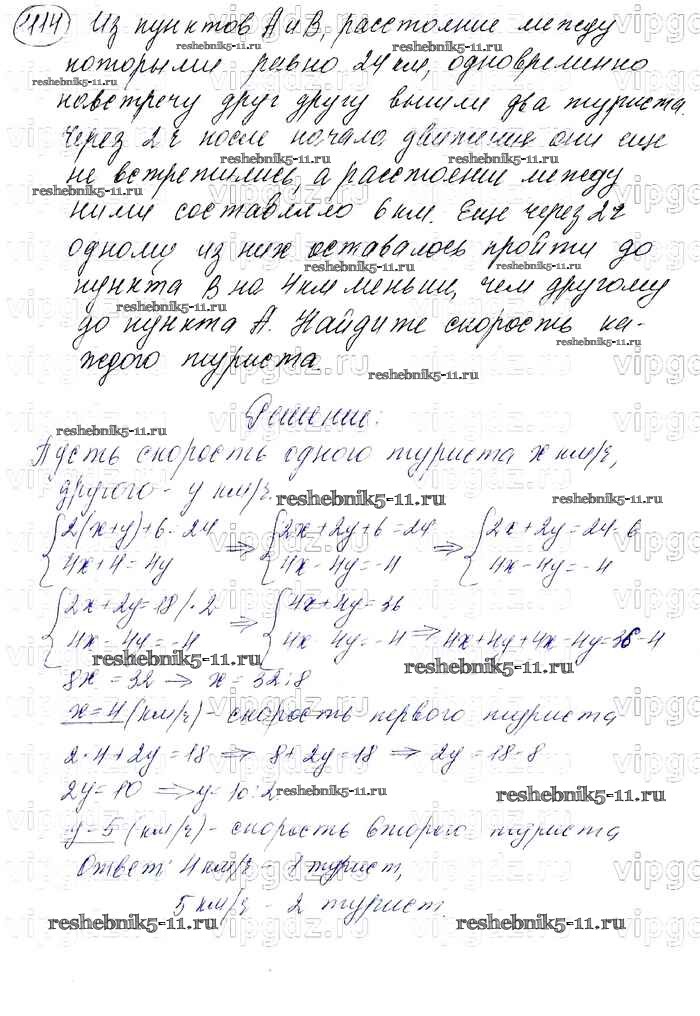 1114 Из пунктов А и В, расстояние между
которыми равно 24 км, одновременно
навстречу друг другу вышли два туриста.
Через 2 ч после начала движения они еще
не встретились, а расстояние между
ними составляло 6 км. Еще через 2 ч
одному из них оставалось пройти до
пункта В на 4 км меньше, чем другому
до пункта А. Найдите скорость ка-
ждого туриста.
Решение:
Пусть скорость одного туриста x км/ч,
другого - y км/ч.
{2(x+y)+6=24 => {2x+2y+6=24 => {2x+2y=24-6
{4x+4=4y {4x-4y=-4 {4x-4y=-4
{2x+2y=18 |·2 => {4x+4y=36
{4x-4y=-4 {4x-4y=-4 => 4x+4y+4x-4y=36-4
8x=32 => x=32:8
x=4 (км/ч) - скорость первого туриста
2·4+2y=18 => 8+2y=18 => 2y=18-8
2y=10 => y=10:2
y=5 (км/ч) - скорость второго туриста
Ответ: 4 км/ч - 1 турист,
5 км/ч - 2 турист.
reshebnik5-11.ru
vipgdz.ru